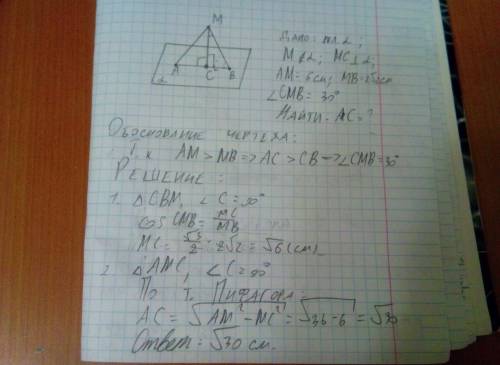 M
A C B
α
Дано: пл α;
M ∉ α; MC ⊥ α;
AM = 6 см; MB = 2√2 см
∠CMB = 30°
Найти - AC = ?
Обоснование чертежа:
Т.к AM > MB => AC > CB -> ∠CMB = 30°
Решение:
1. △CBM, ∠C = 90°
cos CMB = MC/MB
MC = √3/2 · 2√2 = √6 (см)
2. △AMC, ∠C = 90°
По т. Пифагора:
AC = √AM² - MC² = √36 - 6 = √30
Ответ: √30 см.